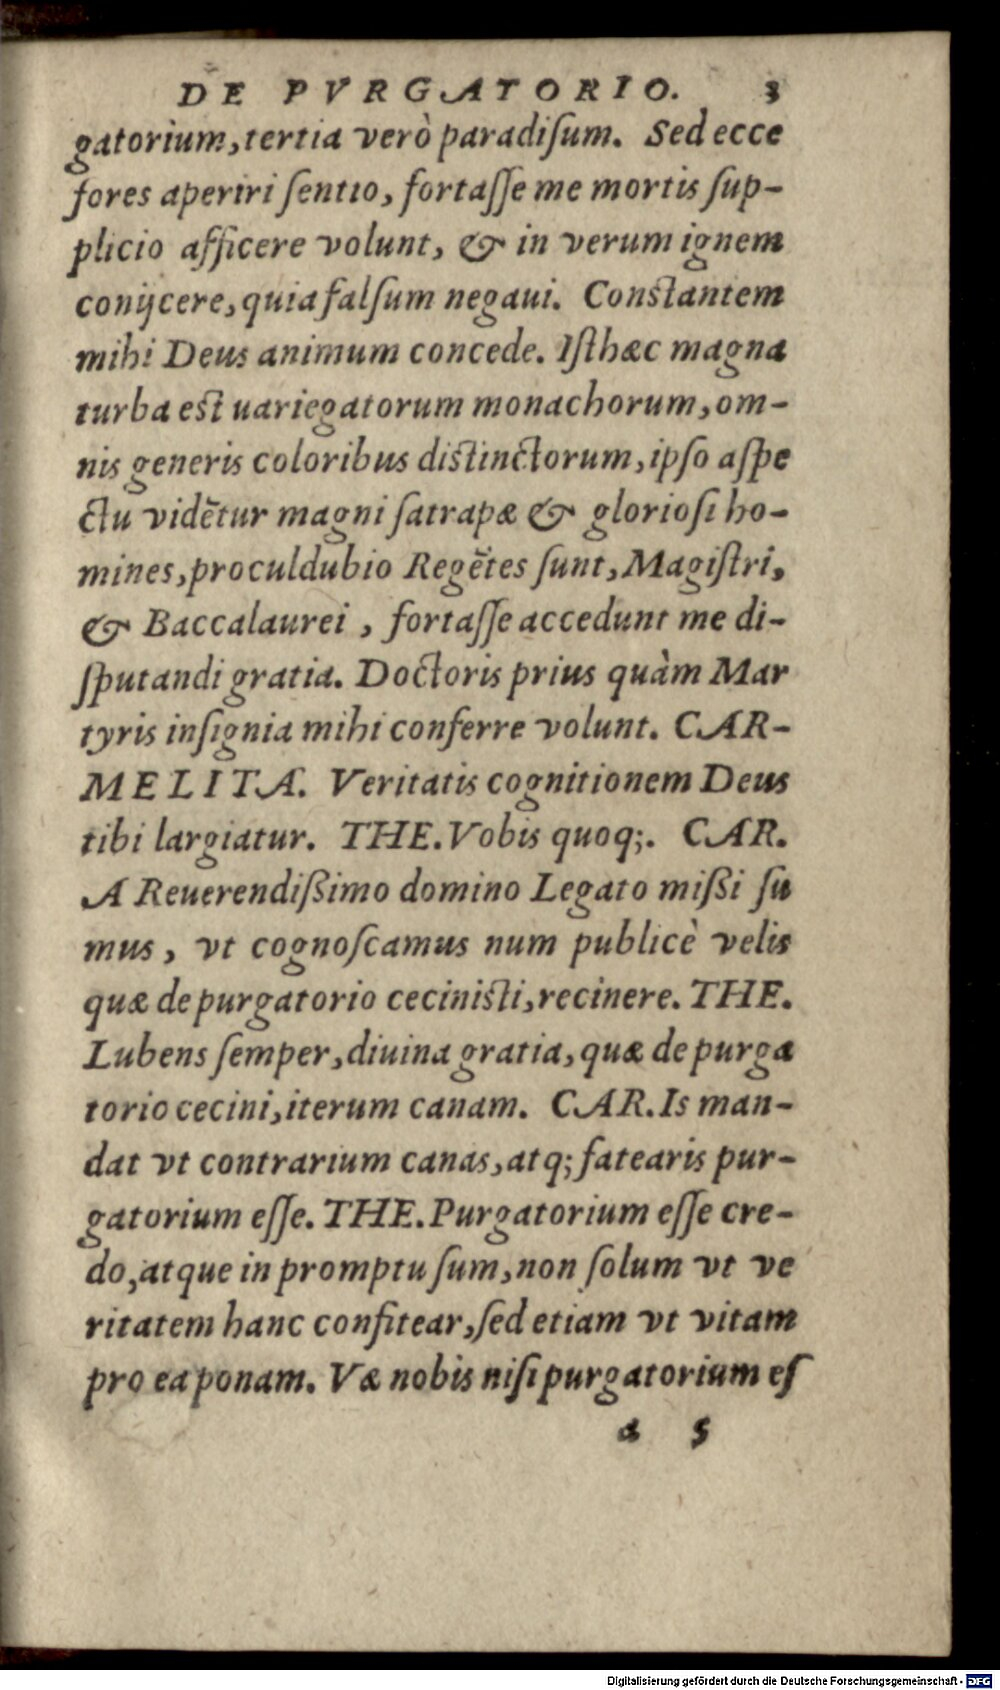 DE PVRGATORIO. 3
gatorium, tertia verò paradiſum. Sed ecce
fores aperiri ſentio, fortaſſe me mortis ſup-
plicio afficere volunt, & in verum ignem
conijcere, quia falſum negaui. Conſtantem
mihi Deus animum concede. Iſthæc magna
turba eſt uariegatorum monachorum, om-
nis generis coloribus diſtinctorum, ipſo aſpe
ctu vidētur magni ſatrapæ & glorioſi ho-
mines, proculdubio Regētes ſunt, Magiſtri,
& Baccalaurei, fortaſſe accedunt me di-
ſputandi gratia. Doctoris prius quàm Mar
tyris inſignia mihi conferre volunt. CAR-
MELITA. Veritatis cognitionem Deus
tibi largiatur. THE. Vobis quoq;. CAR.
A Reuerendißimo domino Legato mißi ſu
mus, vt cognoſcamus num publicè velis
quæ de purgatorio ceciniſti, recinere. THE.
Lubens ſemper, diuina gratia, quæ de purga
torio cecini, iterum canam. CAR. Is man-
dat vt contrarium canas, atq; fatearis pur-
gatorium eſſe. THE. Purgatorium eſſe cre-
do, atque in promptu ſum, non ſolum vt ve
ritatem hanc confitear, ſed etiam vt vitam
pro ea ponam. Væ nobis niſi purgatorium eſ
a 3
Digitalisierung gefördert durch die Deutsche Forschungsgemeinschaft - DFG